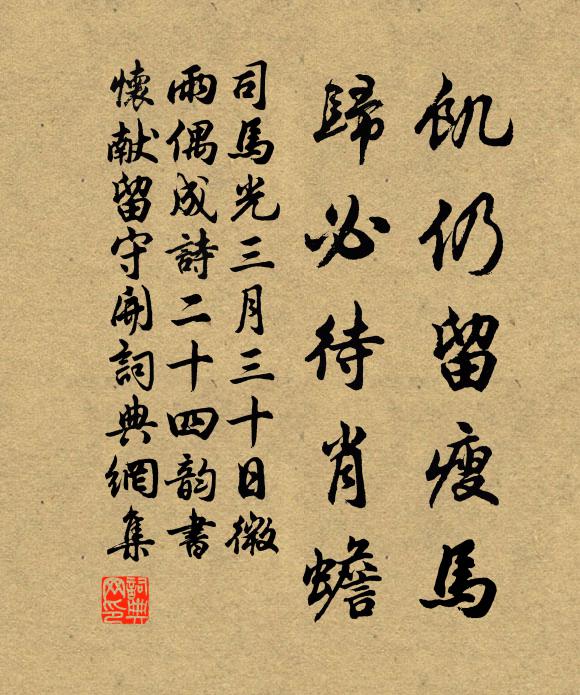 飢仍留瘦馬
歸必待肖蟾
司馬光三月三十日微
雨偶成詩二十四韵書
懷献留守開詞典網集
詞典
网印